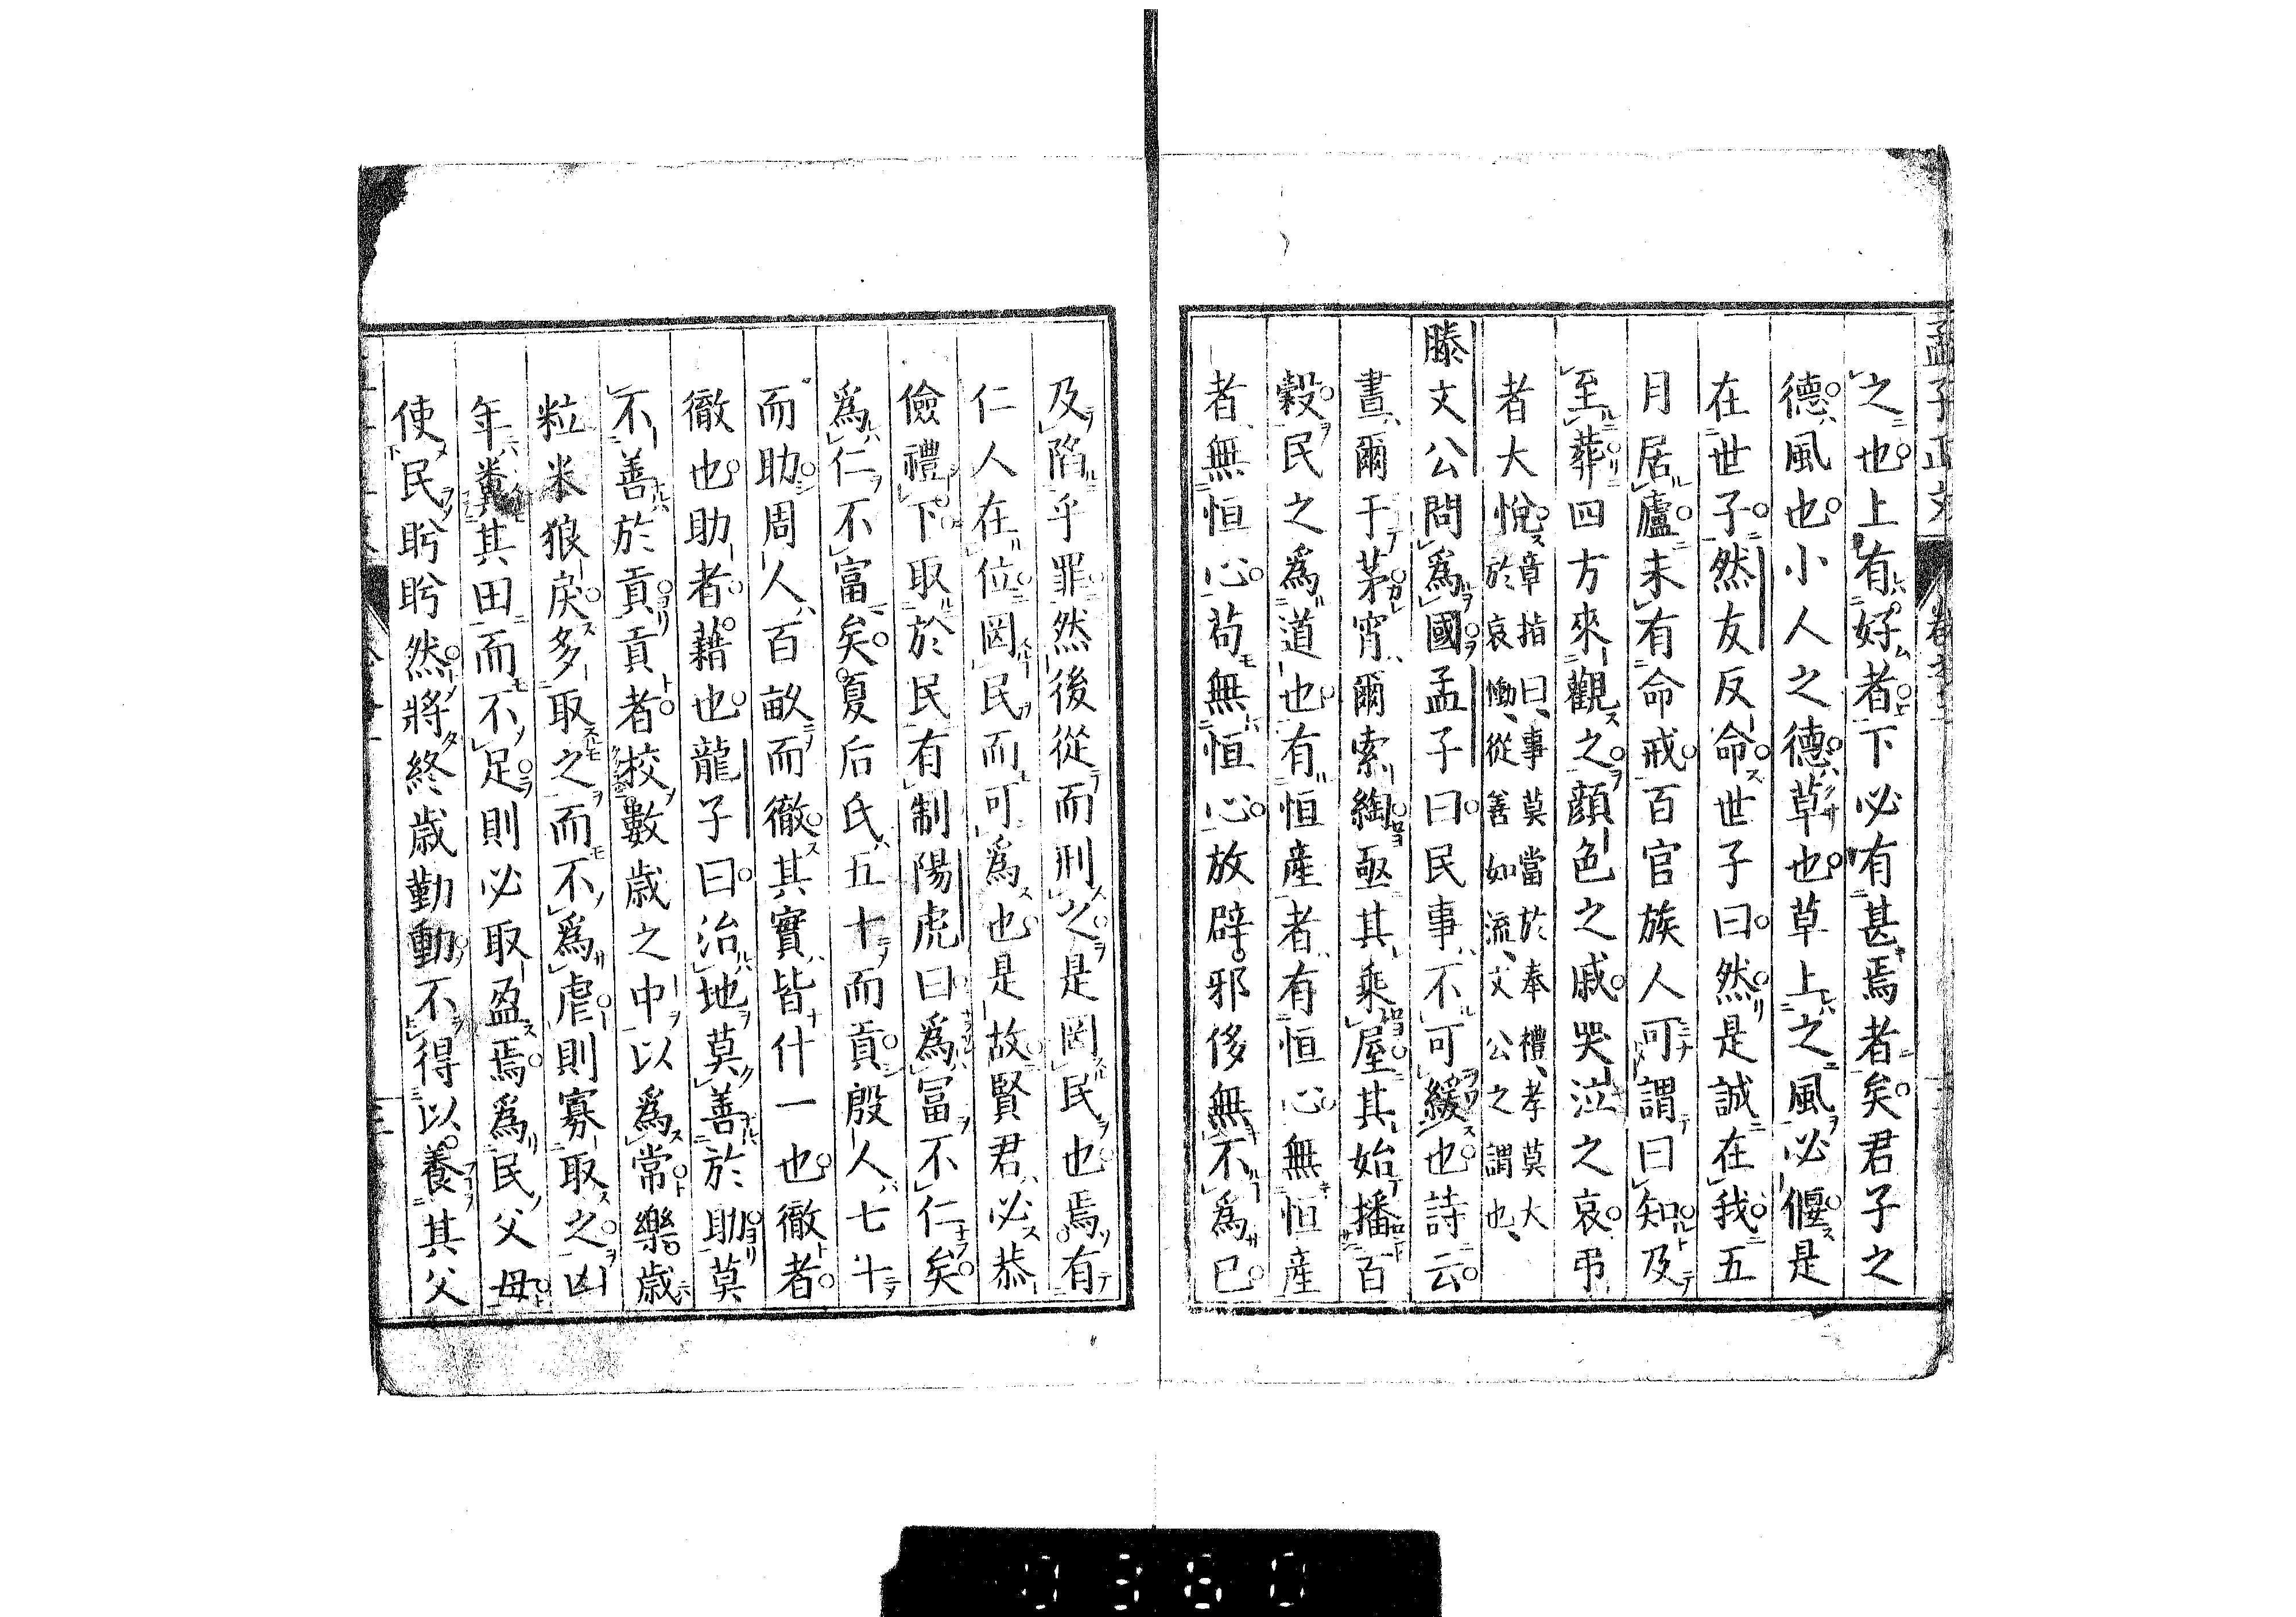 孟子正文 卷之三
之也上有好者下必有甚焉者矣君子之
德風也小人之德草也草上之風必偃是
在世子然友反命世子曰然是誠在我五
月居廬未有命戒百官族人可謂曰知及
至葬四方來觀之顔色之戚哭泣之哀弔
者大悅章指曰事莫當於奉禮孝莫大
於哀慟從善如流文公之謂也
滕文公問爲國孟子曰民事不可緩也詩云
晝爾于茅宵爾索綯亟其乘屋其始播百
穀民之爲道也有恒產者有恒心無恒產
者無恒心苟無恒心放辟邪侈無不爲已
及陷乎罪然後從而刑之是罔民也焉有
仁人在位罔民而可爲也是故賢君必恭
儉禮下取於民有制陽虎曰爲富不仁矣
爲仁不富矣夏后氏五十而貢殷人七十
而助周人百畝而徹其實皆什一也徹者
徹也助者藉也龍子曰治地莫善於助莫
不善於貢貢者校數歳之中以爲常樂歳
粒米狼戾多取之而不爲虐則寡取之凶
年糞其田而不足則必取盈焉爲民父母
使民盻盻然將終歳勤動不得以養其父
0360